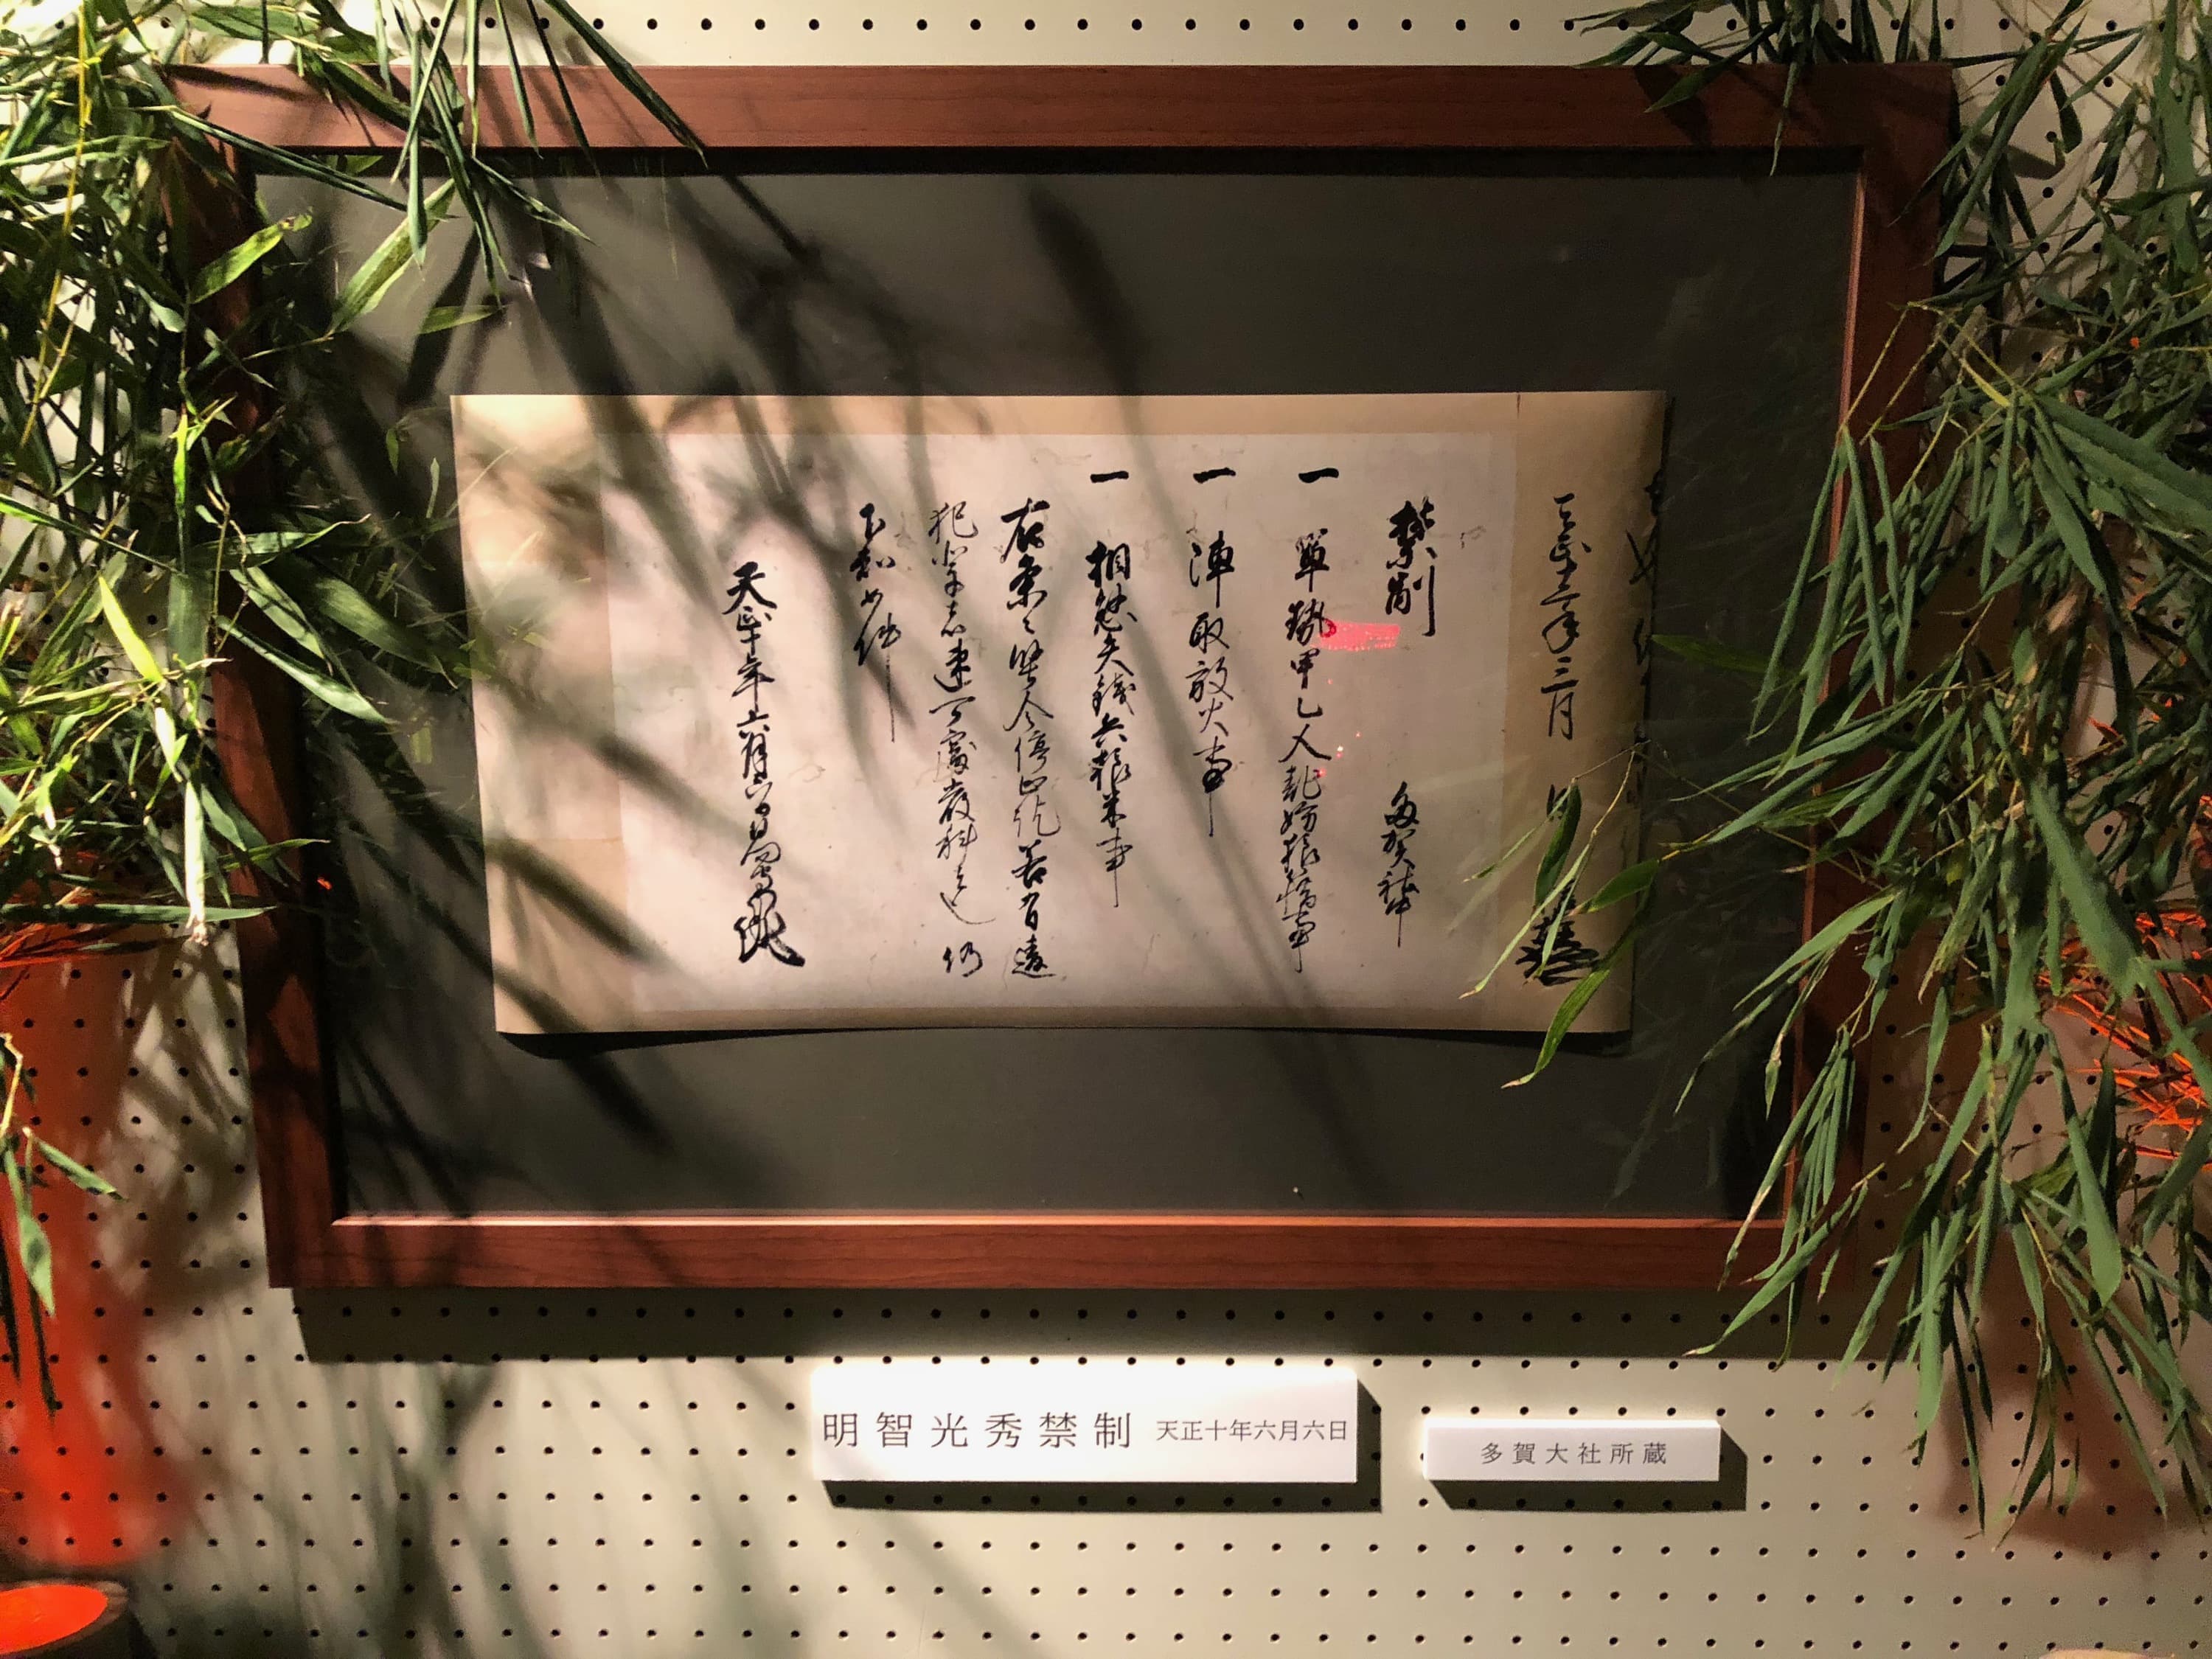 禁制 多賀社
一 軍勢甲乙人乱妨狼藉事
一 陣取放火事
一 相懸矢銭兵粮米事
右条々堅令停止訖若有違
犯輩者速可処厳科者也仍
下知如件
天正十年六月六日
明智光秀禁制 天正十年六月六日
多賀大社所蔵